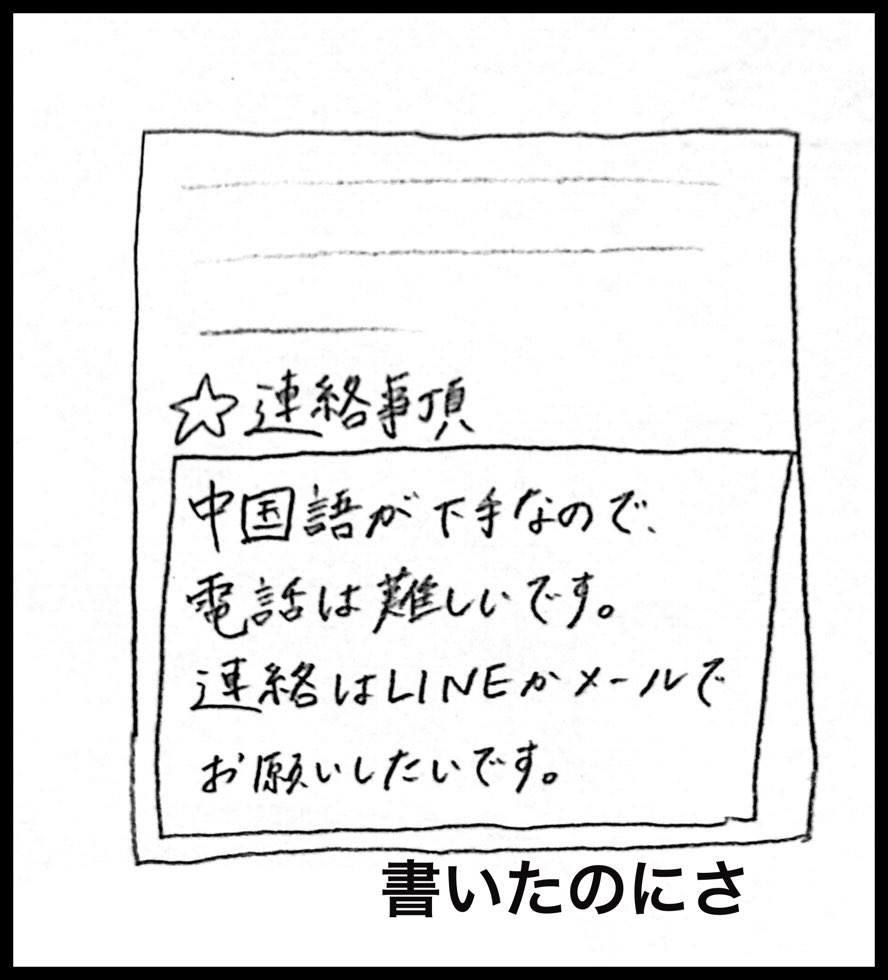 ☆連絡事項
中国語が下手なので、
電話は難しいです。
連絡はLINEかメールで
お願いしたいです。
書いたのにさ